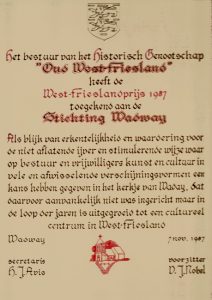 Het bestuur van het Historisch Genootschap
"Oud West-Friesland"
heeft de
West-Frieslandprijs 1987
toegekend aan de
Stichting Wadway
Als blijk van erkentelijkheid en waardering voor
de niet aflatende ijver en stimulerende wijze waar
op bestuur en vrijwilligers kunst en cultuur in
vele en afwisselende verschijningsvormen een
kans hebben gegeven in het kerkje van Waday, dat
daarvoor aanvankelijk niet was ingericht maar in
de loop der jaren is uitgegroeid tot een cultureel
centrum in West-Friesland
Wadway 7 nov. 1987
secretaris voorzitter
H.J. Avis P.J. Nobel